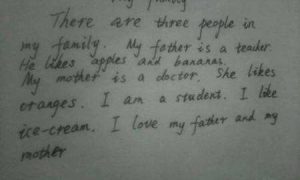 my family
There are three people in
my family. My father is a teacher.
He likes apples and bananas.
My mother is a doctor. She likes
oranges. I am a student. I like
ice-cream. I love my father and my
mother